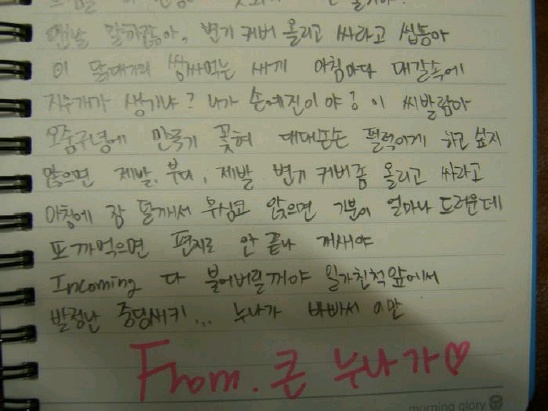 맨날 말하잖아, 변기 커버 올리고 싸라고 씹통아
이 닭대가리 쌈싸먹는 새끼 아침마다 대갈속에
지우개가 생기냐? 내가 손예진이야? 이 씨발람아
오줌구녕에 만국기 꽂혀 대대손손 펄럭이게 하고 싶지
않으면 제발, 부디, 제발 변기 커버좀 올리고 싸라고
아침에 잠 덜깨서 무심코 앉으면 기분이 얼마나 드러운데
또 까먹으면 편지로 안 끝나 개새야
Incoming 다 불어버릴꺼야 일가친척앞에서
발정난 중딩새키... 누나가 바빠서 이만
From. 큰 누나가♡
morning glory